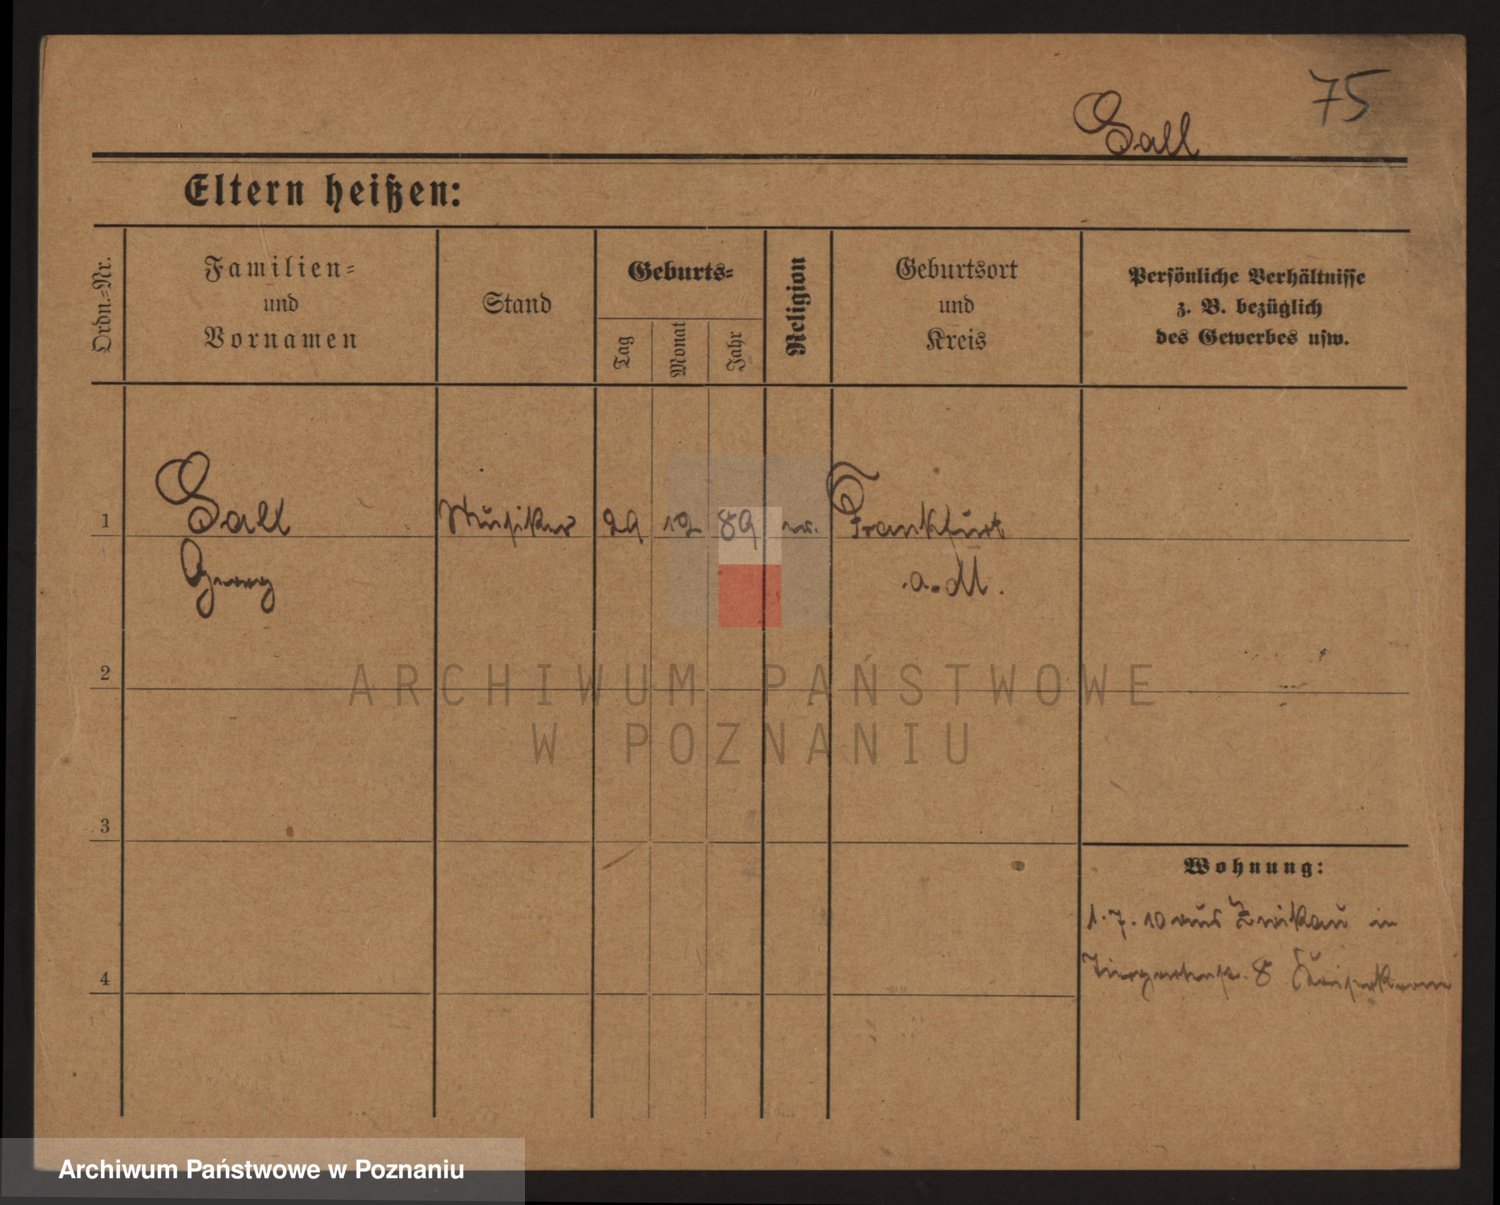 75
Sall
Eltern heißen:
Ordn.-Nr.
Familien-
und
Vornamen
Stand
Geburts-
Tag
Monat
Jahr
Religion
Geburtsort
und
Kreis
Persönliche Verhältnisse
z. B. bezüglich
des Gewerbes usw.
1
Sall
Musiker
29
12
89
Frankfurt
Georg
a. M.
2
ARCHIWUM PAŃSTWOWE
W POZNANIU
3
Wohnung:
1. 7. 10 aus Zwikau in
4
Tiergartenstr. 8 Kaiserkrone
Archiwum Państwowe w Poznaniu